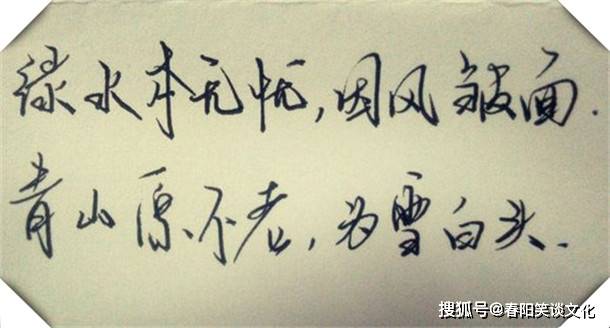 绿水本无忧,因风皱面.
青山原不老,为雪白头.
搜狐号@春阳笑谈文化